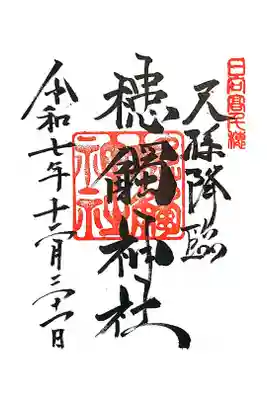 日向高千穂
天孫降臨
槵觸神社
令和七年十二月三十一日